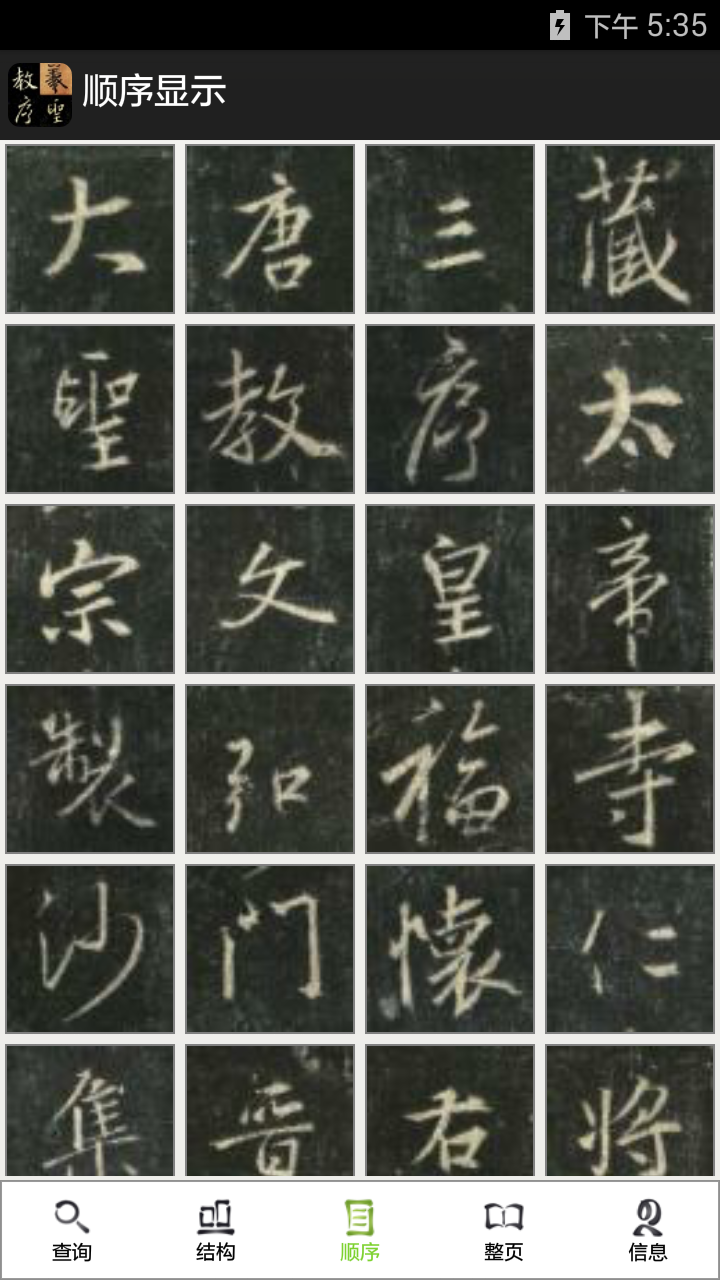 下午 5:35
教羲序聖 顺序显示
大唐三藏
聖教序太
宗文皇帝
製弘福寺
沙门懷仁
集晋右将
查询 结构 顺序 整页 信息